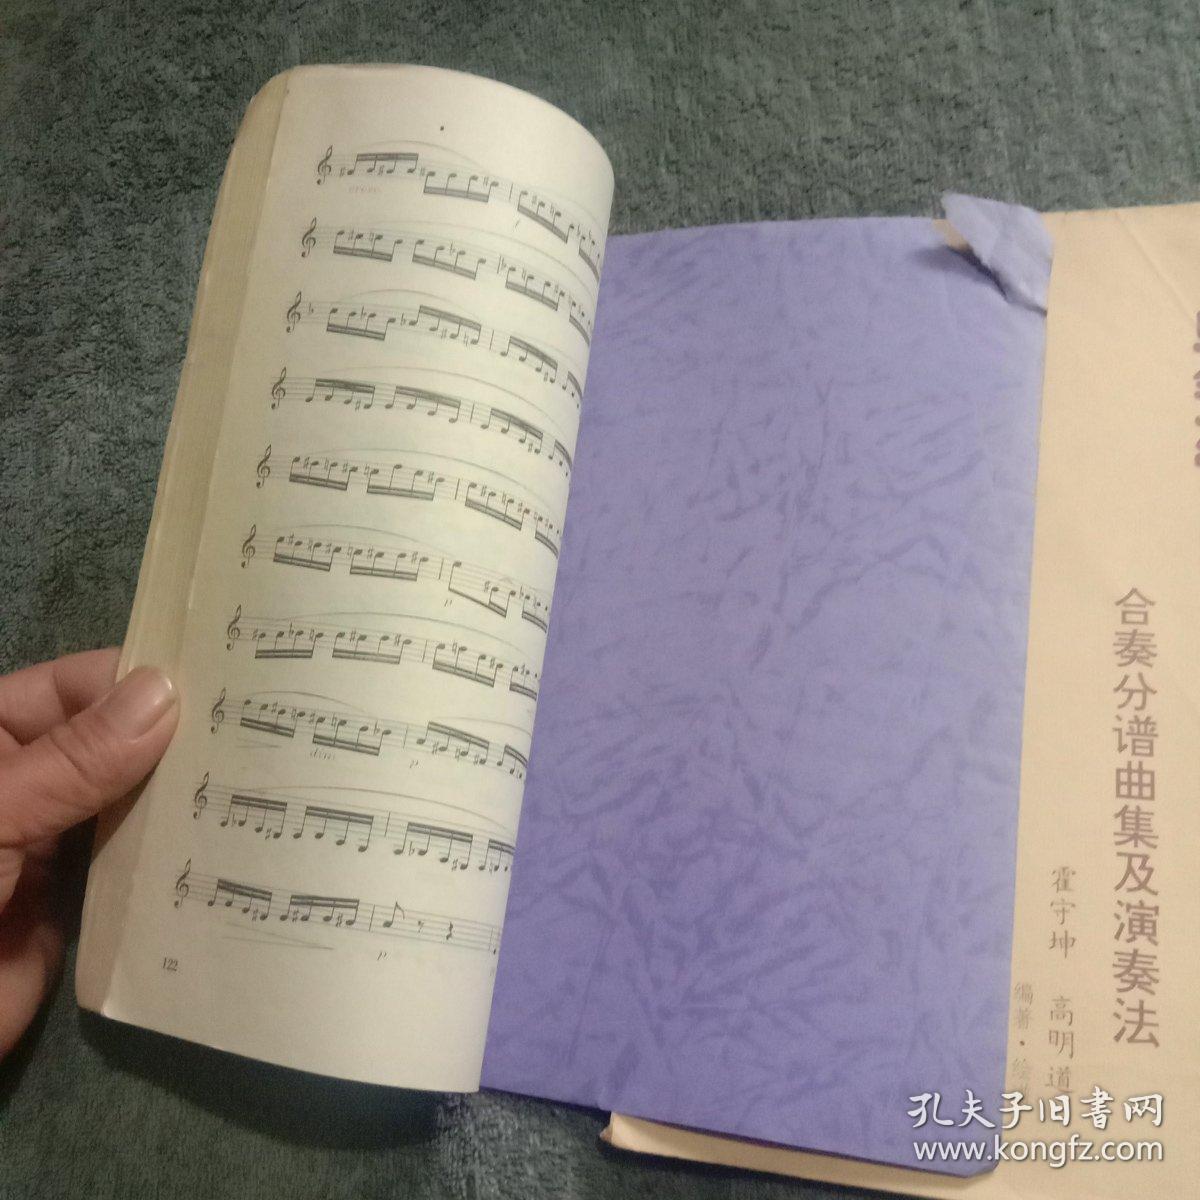 cresc.
p
p
dim.
p
p
122
合奏分谱曲集及演奏法
霍守坤 高明道
编著·绘
孔夫子旧書网
www.kongfz.com